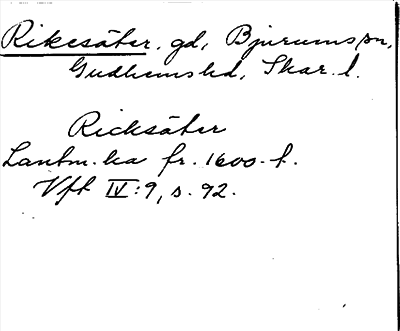 Rikesäter, gd, Bjurums sn,
Gudhems hd, Skar. l.
Ricksäter
Lantm. ka fr. 1600-t.
Vft IV:9, s. 92.